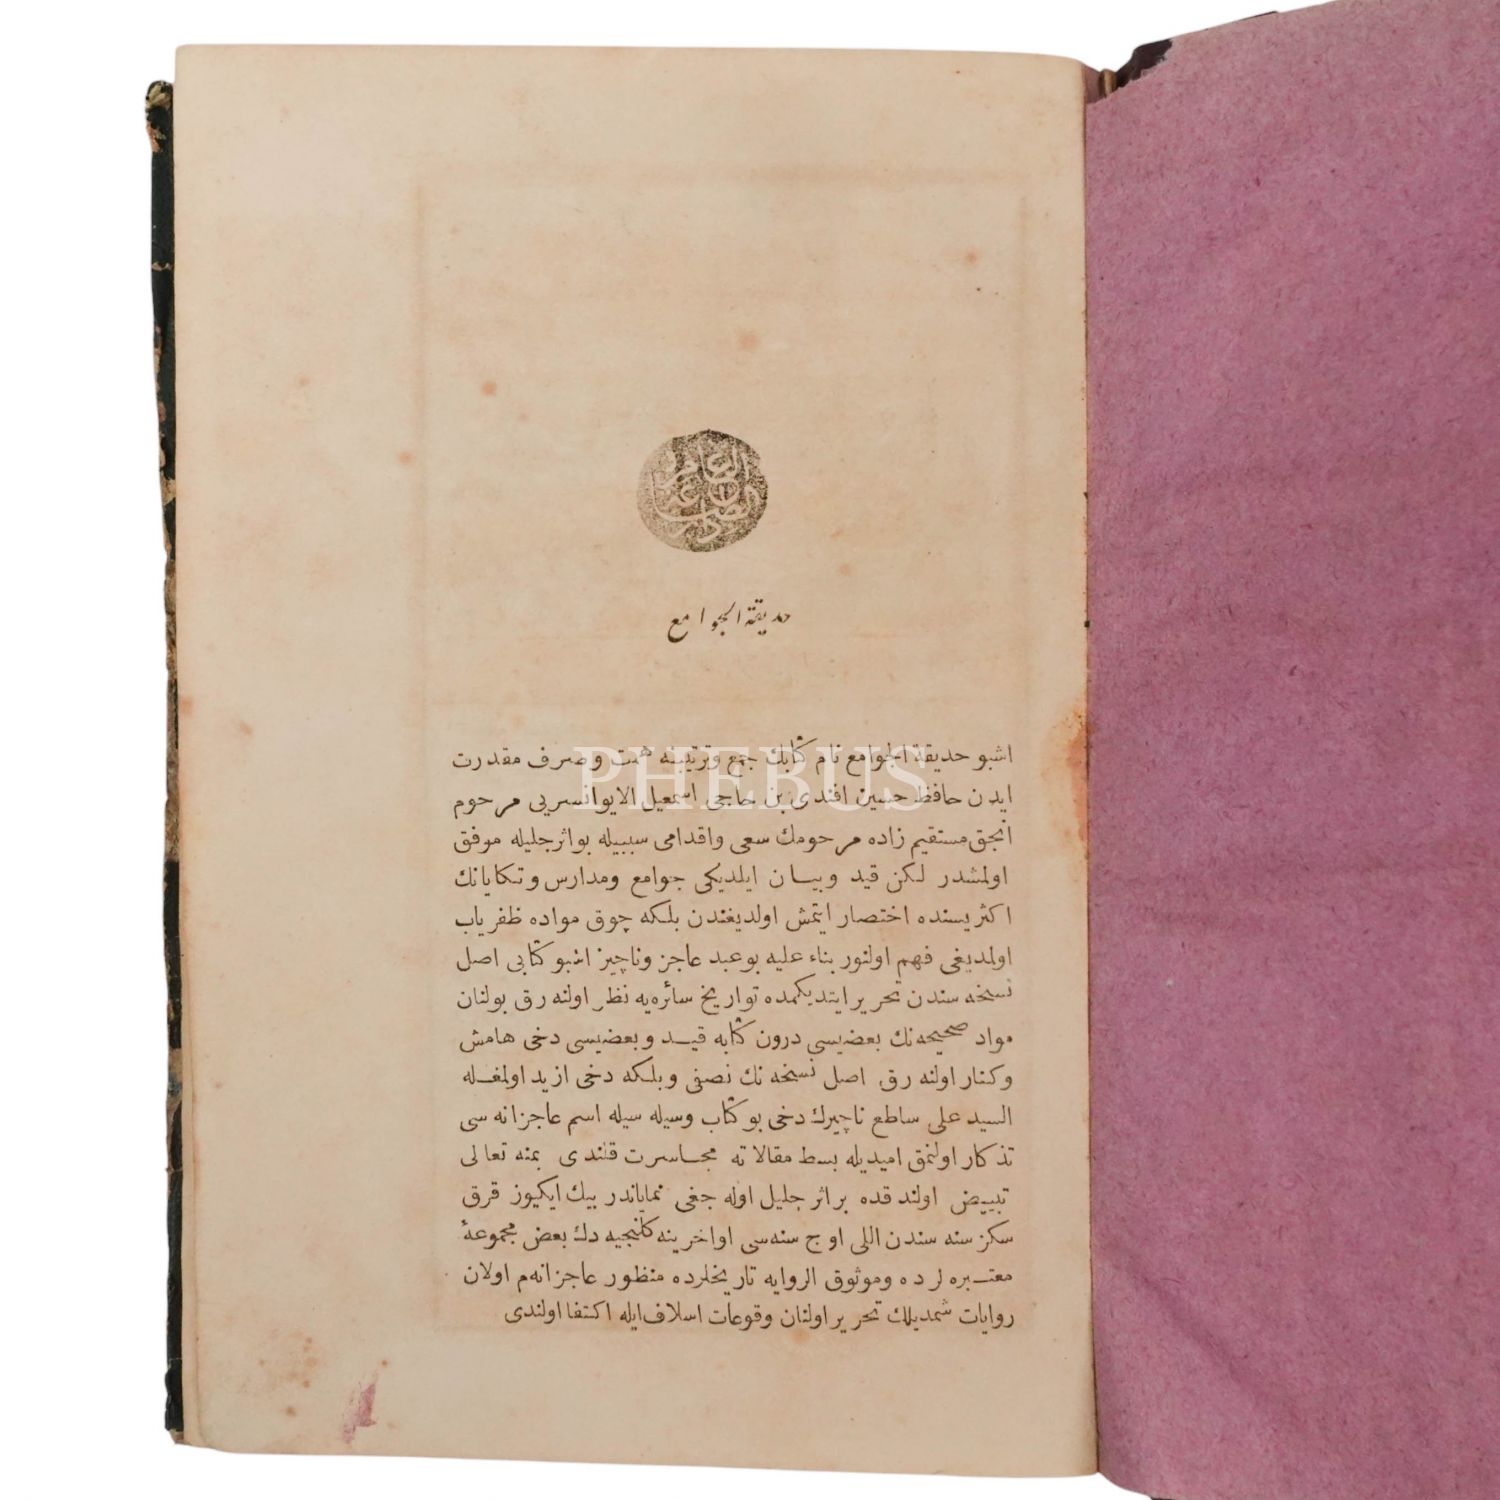 حديقة الجوامع
اشبو حديقة الجوامع نام كتابك جمع وترتيبنه همت وصرف مقدرت
ايدن حافظ حسين افندى بن حاجى اسمعيل الايوانسرايى مرحوم
انجق مستقيم زاده مرحومك سعى واقدامى سببيله بواثر جليله موفق
اولمشدر لكن قيد وبيان ايلديكى جوامع ومدارس وتكايانك
اكثريسنده اختصار ايتمش اولديغندن بلكه چوق مواده ظفرياب
اولمديغى فهم اولنور بناء عليه بوعبد عاجز وناچيز اشبو كتابى اصل
نسخه سندن تحرير ايتديكمده تواريخ سائره يه نظر اولنه رق بولنان
مواد صحيحه نك بعضيسى درون كتابه قيد وبعضيسى دخى هامش
وكنار اولنه رق اصل نسخه نك نصفى وبلكه دخى ازيد اولمغله
السيد على ساطع ناچيزك دخى بوكتاب وسيله سيله اسم عاجزانه سى
تذكار اولنمق اميديله بسط مقالاته مجاسرت قلندى بمنه تعالى
تبييض اولندقده براثر جليل اوله جغى نماياندر بيك ايكيوز قرق
سكز سنه سندن اللى اوچ سنه سى اواخرينه كلنجيه دك بعض مجموعۀ
معتبره لرده وموثوق الروايه تاريخلرده منظور عاجزانه م اولان
روايات شمديلك تحرير اولنان وقوعات اسلاف ايله اكتفا اولندى
PHEBUS